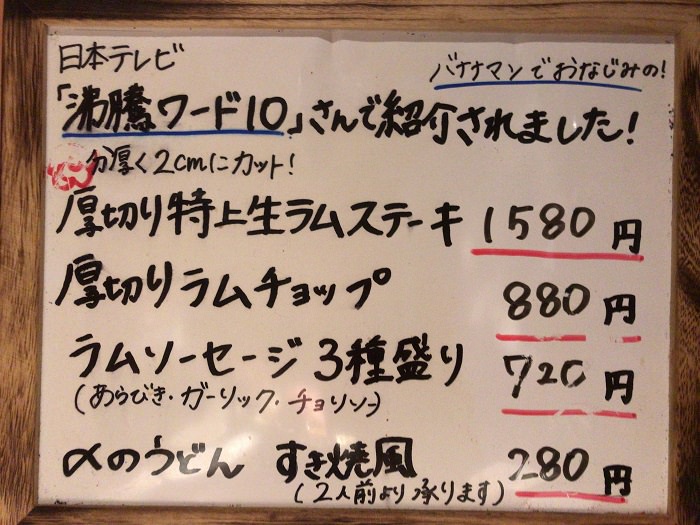 日本テレビ
バナナマンでおなじみの!
「沸騰ワード10」さんで紹介されました!
分厚く2cmにカット!
厚切り特上生ラムステーキ 1580円
厚切りラムチョップ 880円
ラムソーセージ3種盛り 720円
(あらびき・ガーリック・チョリソー)
〆のうどん すき焼風 280円
(2人前より承ります)